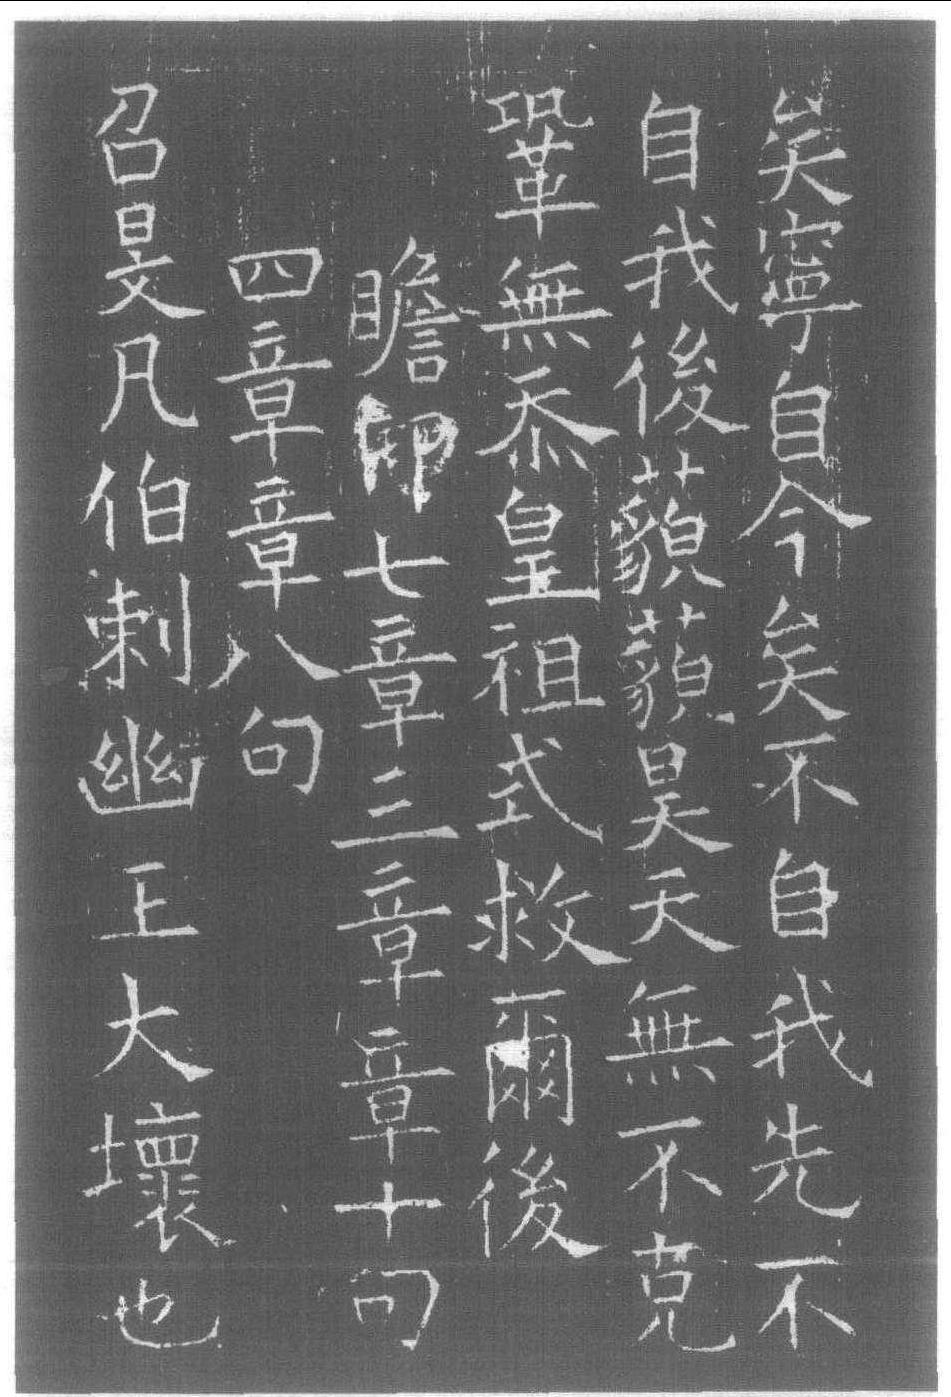 矣寧自今矣不自我先不
自我後藐藐昊天無不克
鞏無忝皇祖式救爾後
瞻卬七章三章章十句
四章章八句
召旻凡伯刺幽王大壞也